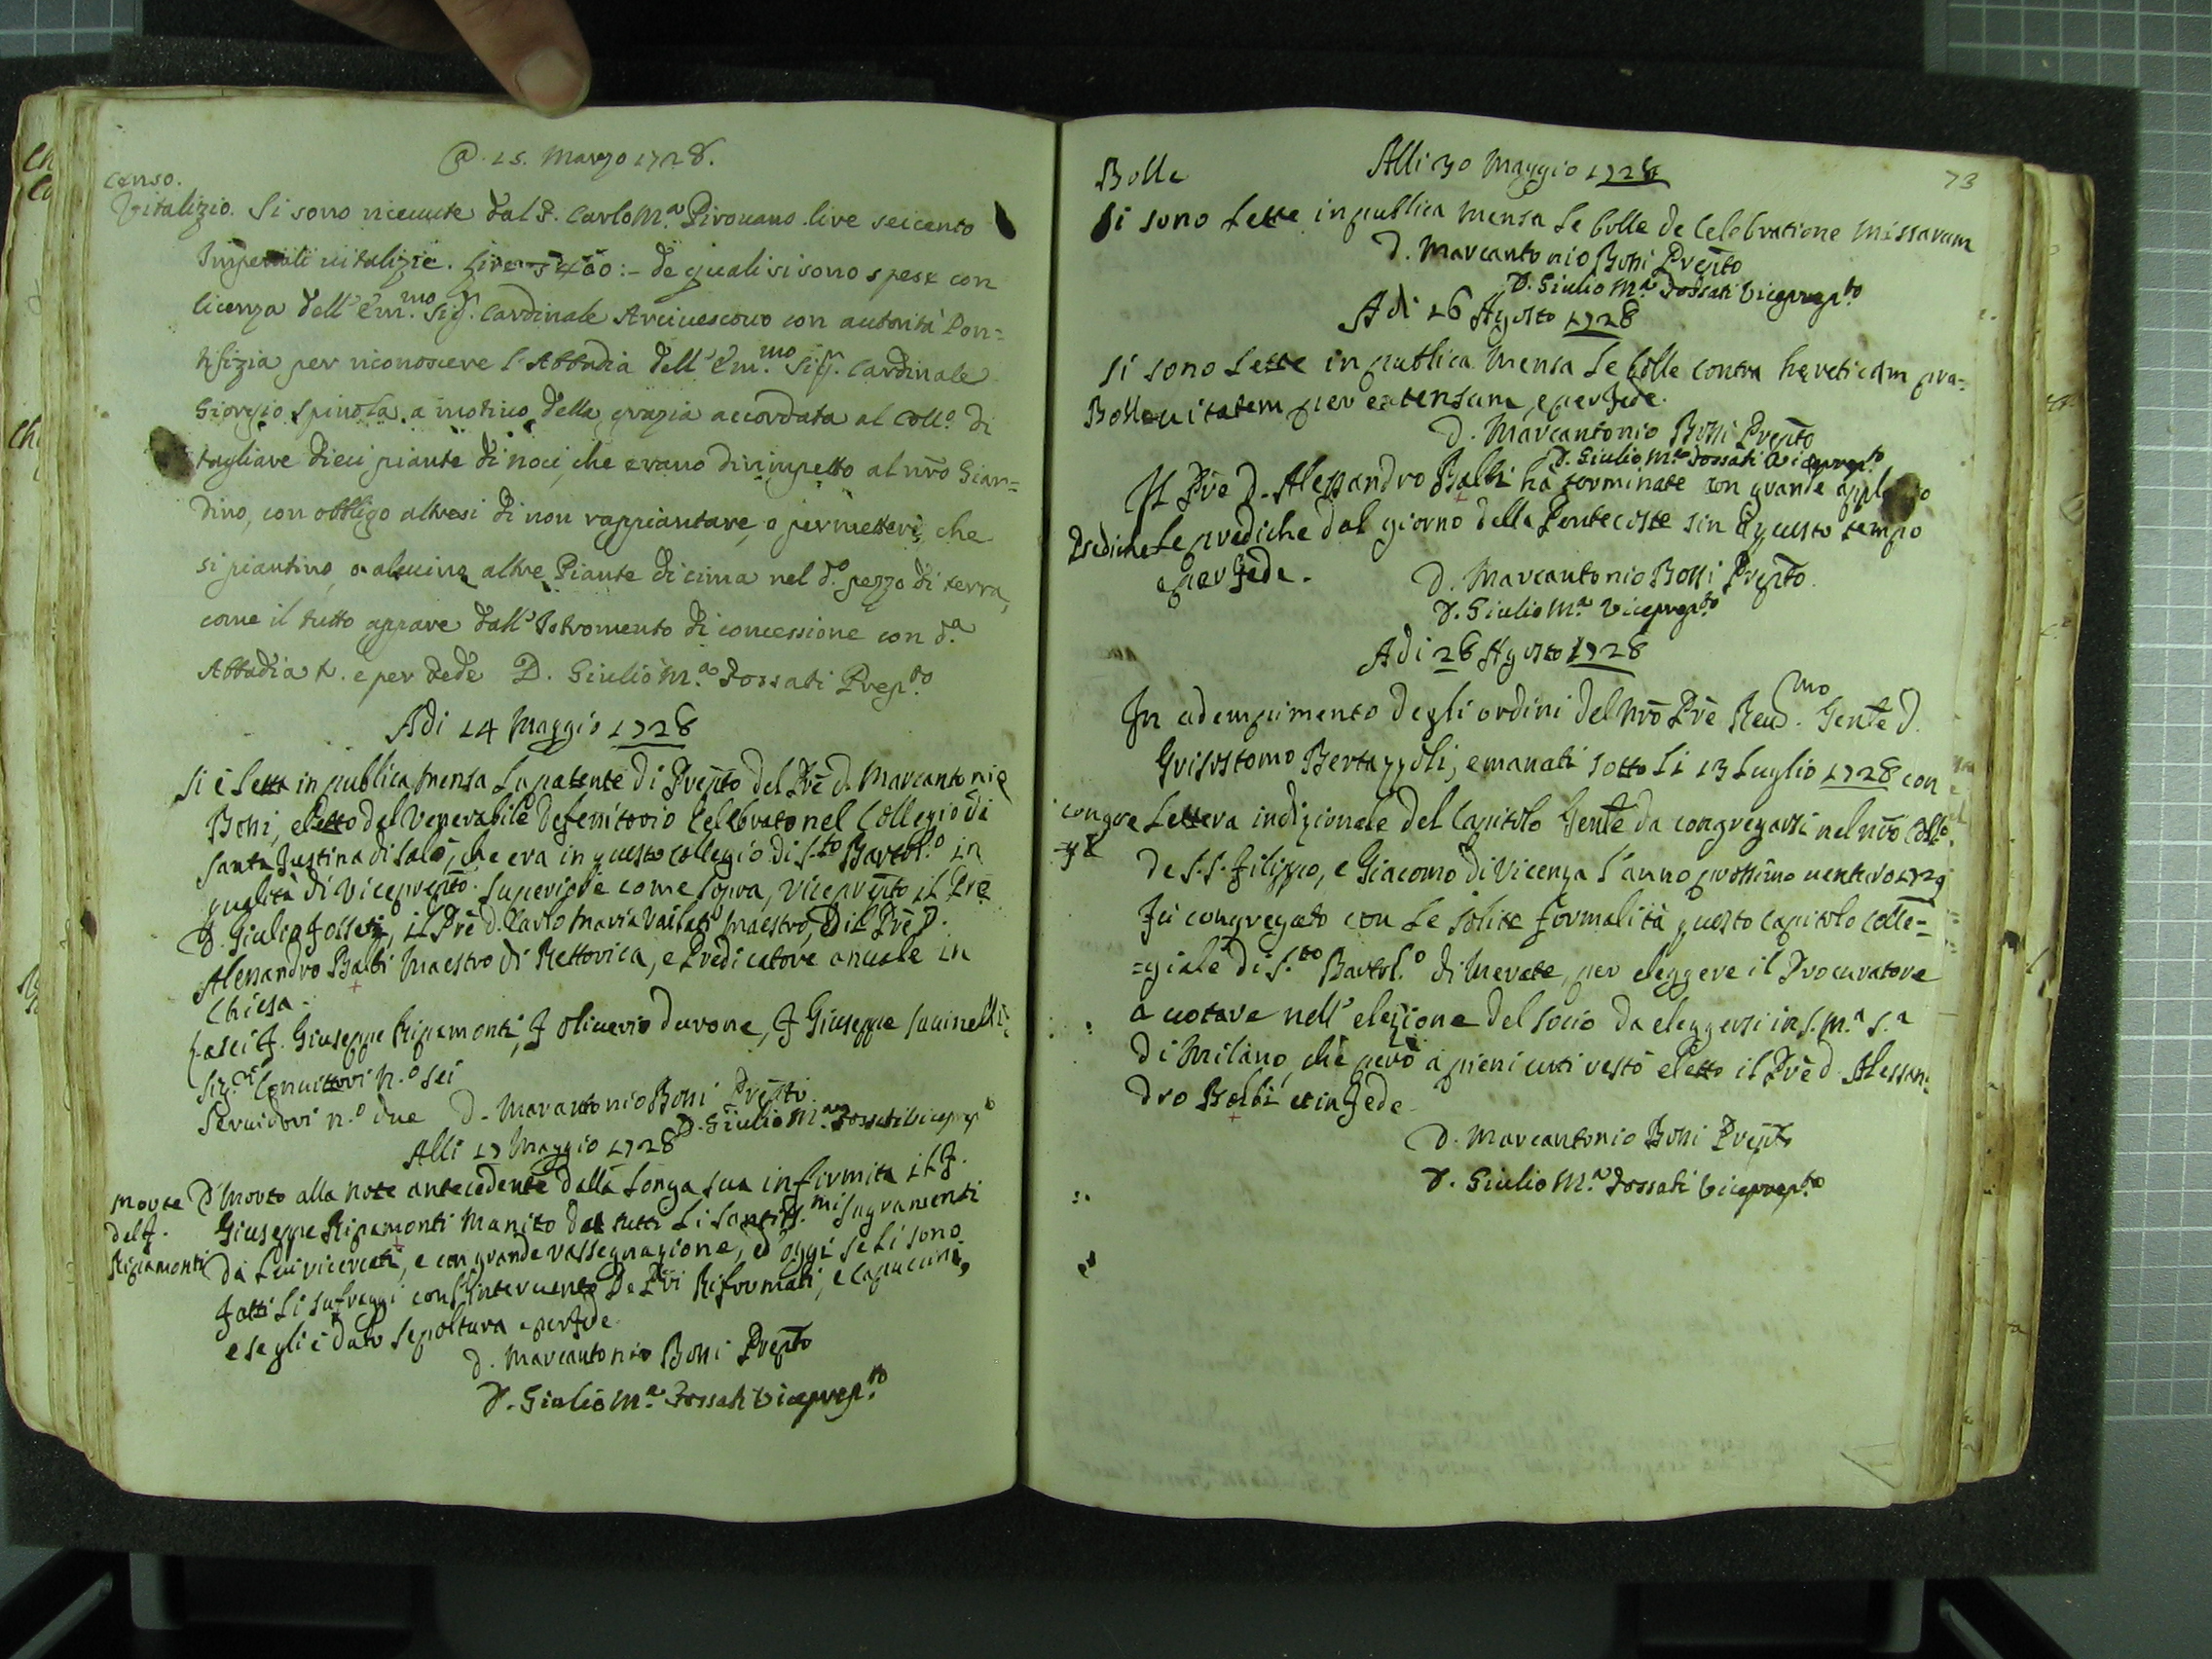 @ 15. Marzo 1728.
Censo.
Vitalizio. Si sono riceuute dal P. Carlo M.a Pirouano lire seicento
Imperiali uitalizie. Lire 5400:- de quali si sono spese con
licenza dell'Em.mo Sig.r Cardinale Arciuescouo con autorità Pon=
tifizia per riconoscere l'Abbadia dell'Em.mo Sig.r Cardinale
Giorgio Spinola, a motiuo della grazia accordata al Coll.o di
tagliare dieci piante di noci, che erano dirimpetto al nr̄o Giar=
dino, con obbligo altresi di non rappiantare, o permettere, che
si piantino, o alcuina altre Piante di cima nel d.o pezzo di terra,
come il tutto appare dall'Istromento di concessione con d.a
Abbadia e per fede D. Giulio M.a Fossati Prep.to
Adi 14 Maggio 1728
Si è letta in publica mensa la patente di Prep̄to del Prē d. Marcantonio
Boni, eletto dal Venerabile Defenitorio Celebrato nel Collegio di
Santa Justina di Salò, che era in questo collegio di S.to Bartol.o in
qualità di Viceprep̄to. Superiore come sopra, Viceprep̄to il Prē
D. Giulio Fossati, il Prē d. Carlo Maria Vailati Maestro, Ed il Prē D.
Alessandro Balbi Maestro di Rettorica, e Predicatore anuale in
Chiesa.
Laici F. Giuseppe Ripamonti, F Oliuerio durone, F Giuseppe Sauinelli:
Sig.ri Conuittori n.o sei
Seruidori n.o due D. Marcantonio Boni Prep̄to.
D. Giulio M.a Fossati Viceprep.to
Alli 17 Maggio 1728
Morte È morto alla note antecedente dalla longa sua infirmita il F.
del F. Giuseppe Ripamonti Manito de tutti li Santiss.mi Sagramenti
Ripamonti da lui ricercati, e con grande rassegnazione, ed oggi se li sono
fatti li sufraggi con l'interuento De Pr̄i Riformati, e Capuccini,
e se gli è dato sepoltura e per fede.
D. Marcantonio Boni Prep̄to
D. Giulio M.a Fossati Viceprep.to
73
Bolle Alli 30 Maggio 1728
Si sono lette in publica mensa le bolle de Celebratione missarum
D. Marcantonio Boni Prep̄to
D. Giulio M.a Fossati Viceprep.to
Adi 16 Agosto 1728
Si sono lette in publica mensa le bolle contra hęreticam pra=
Bolle uitatem per extensum, e per fede.
D. Marcantonio Boni Prep̄to
D. Giulio M.a Fossati Viceprep.to
Il Prē D. Alessandro Balbi ha terminate con grande
Prediche Le prediche dal giorno della Pentecoste sin a questo tempo
e per fede.
D. Marcantonio Boni Prep̄to.
D. Giulio M.a Viceprep.to
Adi 26 Agosto 1728
In adempimento degli ordini del nrō Prē Reud.mo Genle D.
Grisostomo Bertazzoli, emanati sotto li 13 Luglio 1728 con
Lettera indizionale del Capitolo Genle da congregarsi nel nrō Coll.o
de S.S. Filippo, e Giacomo di Vicenza l'anno prossimo uenturo 1729
Fù congregato con le solite formalità questo capitolo colle=
=giale di S.to Bartol.o di Merate, per eleggere il Procuratore
a uotare nell'elezione del socio da eleggersi in S. M.a S.a
di Milano, che però a pieni uoti restò eletto il Prē d. Alessan:
dro Balbi et in fede.
D. Marcantonio Boni Prep̄to
D. Giulio M.a Fossati Viceprep.to